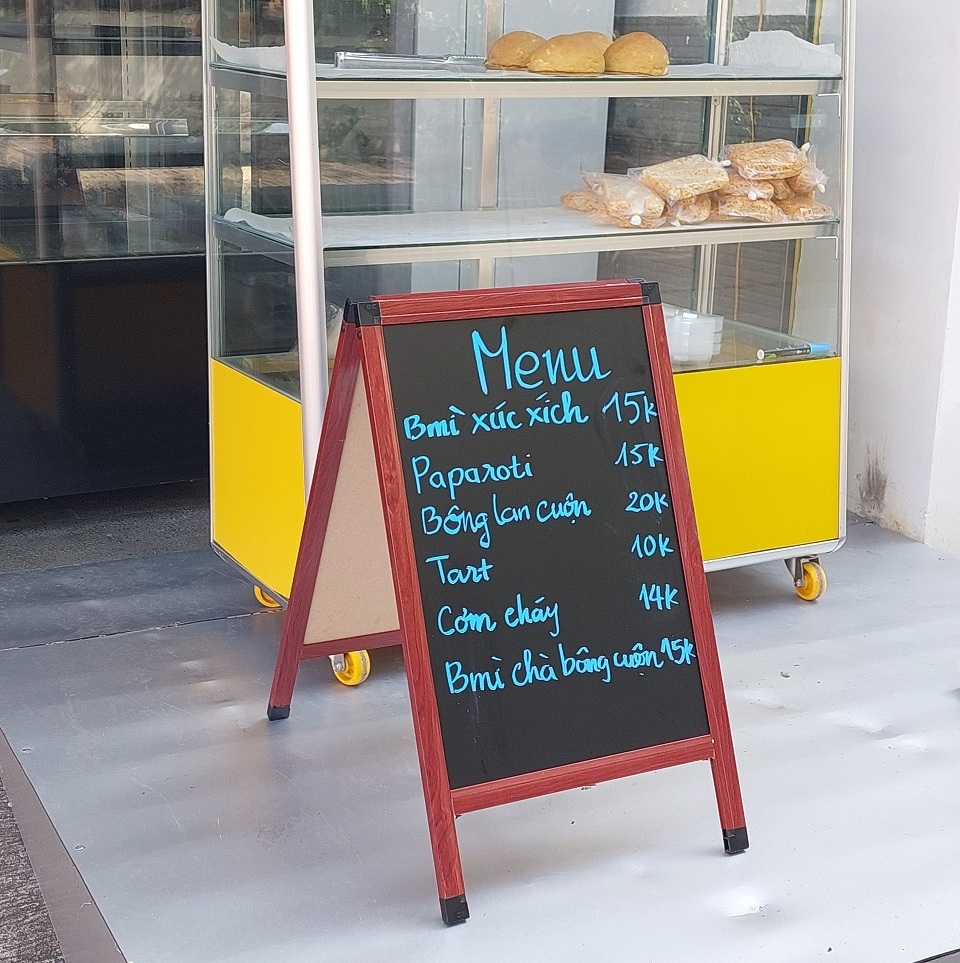 Menu
Bmì xúc xích 15k
Paparoti 15k
Bông lan cuộn 20k
Tart 10k
Cơm cháy 14k
Bmì chà bông cuộn 15k